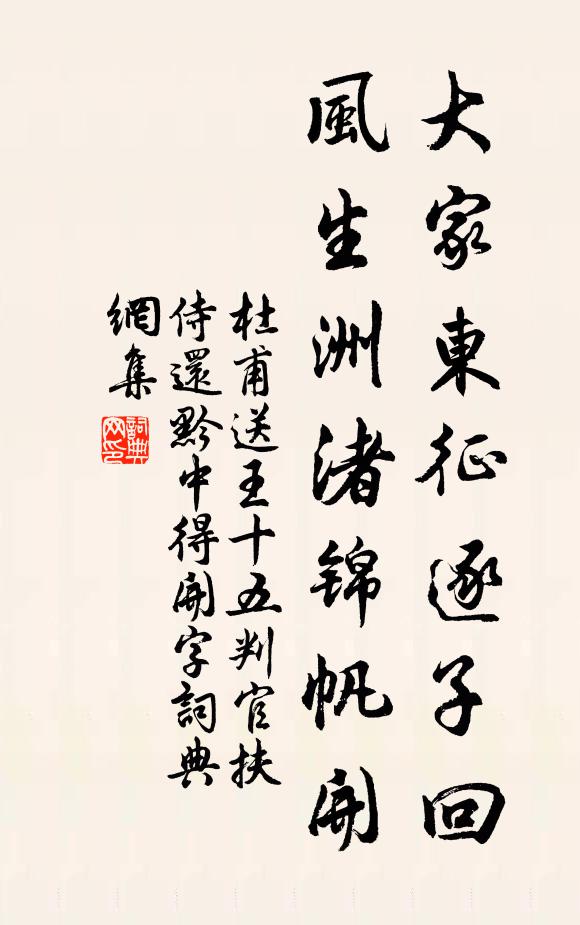 大家東征逐子回
風生洲渚錦帆開
杜甫送王十五判官扶
侍還黔中得開字詞典
網集
詞典
网印